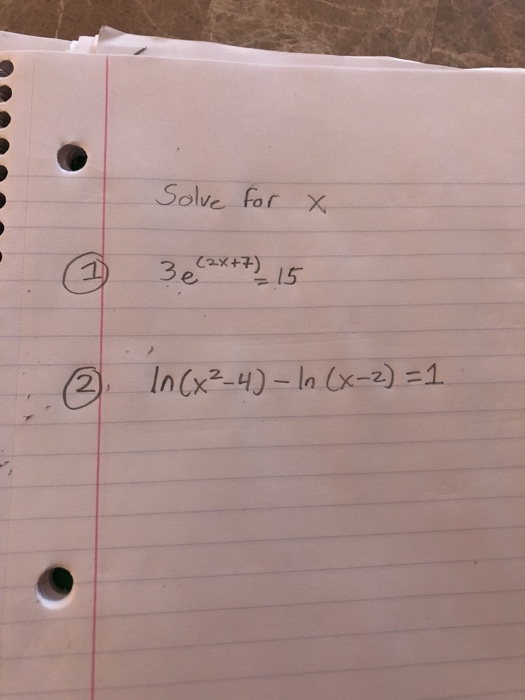 Solve for x
① 3e^(2x+7) = 15
② ln(x²-4) - ln(x-2) = 1